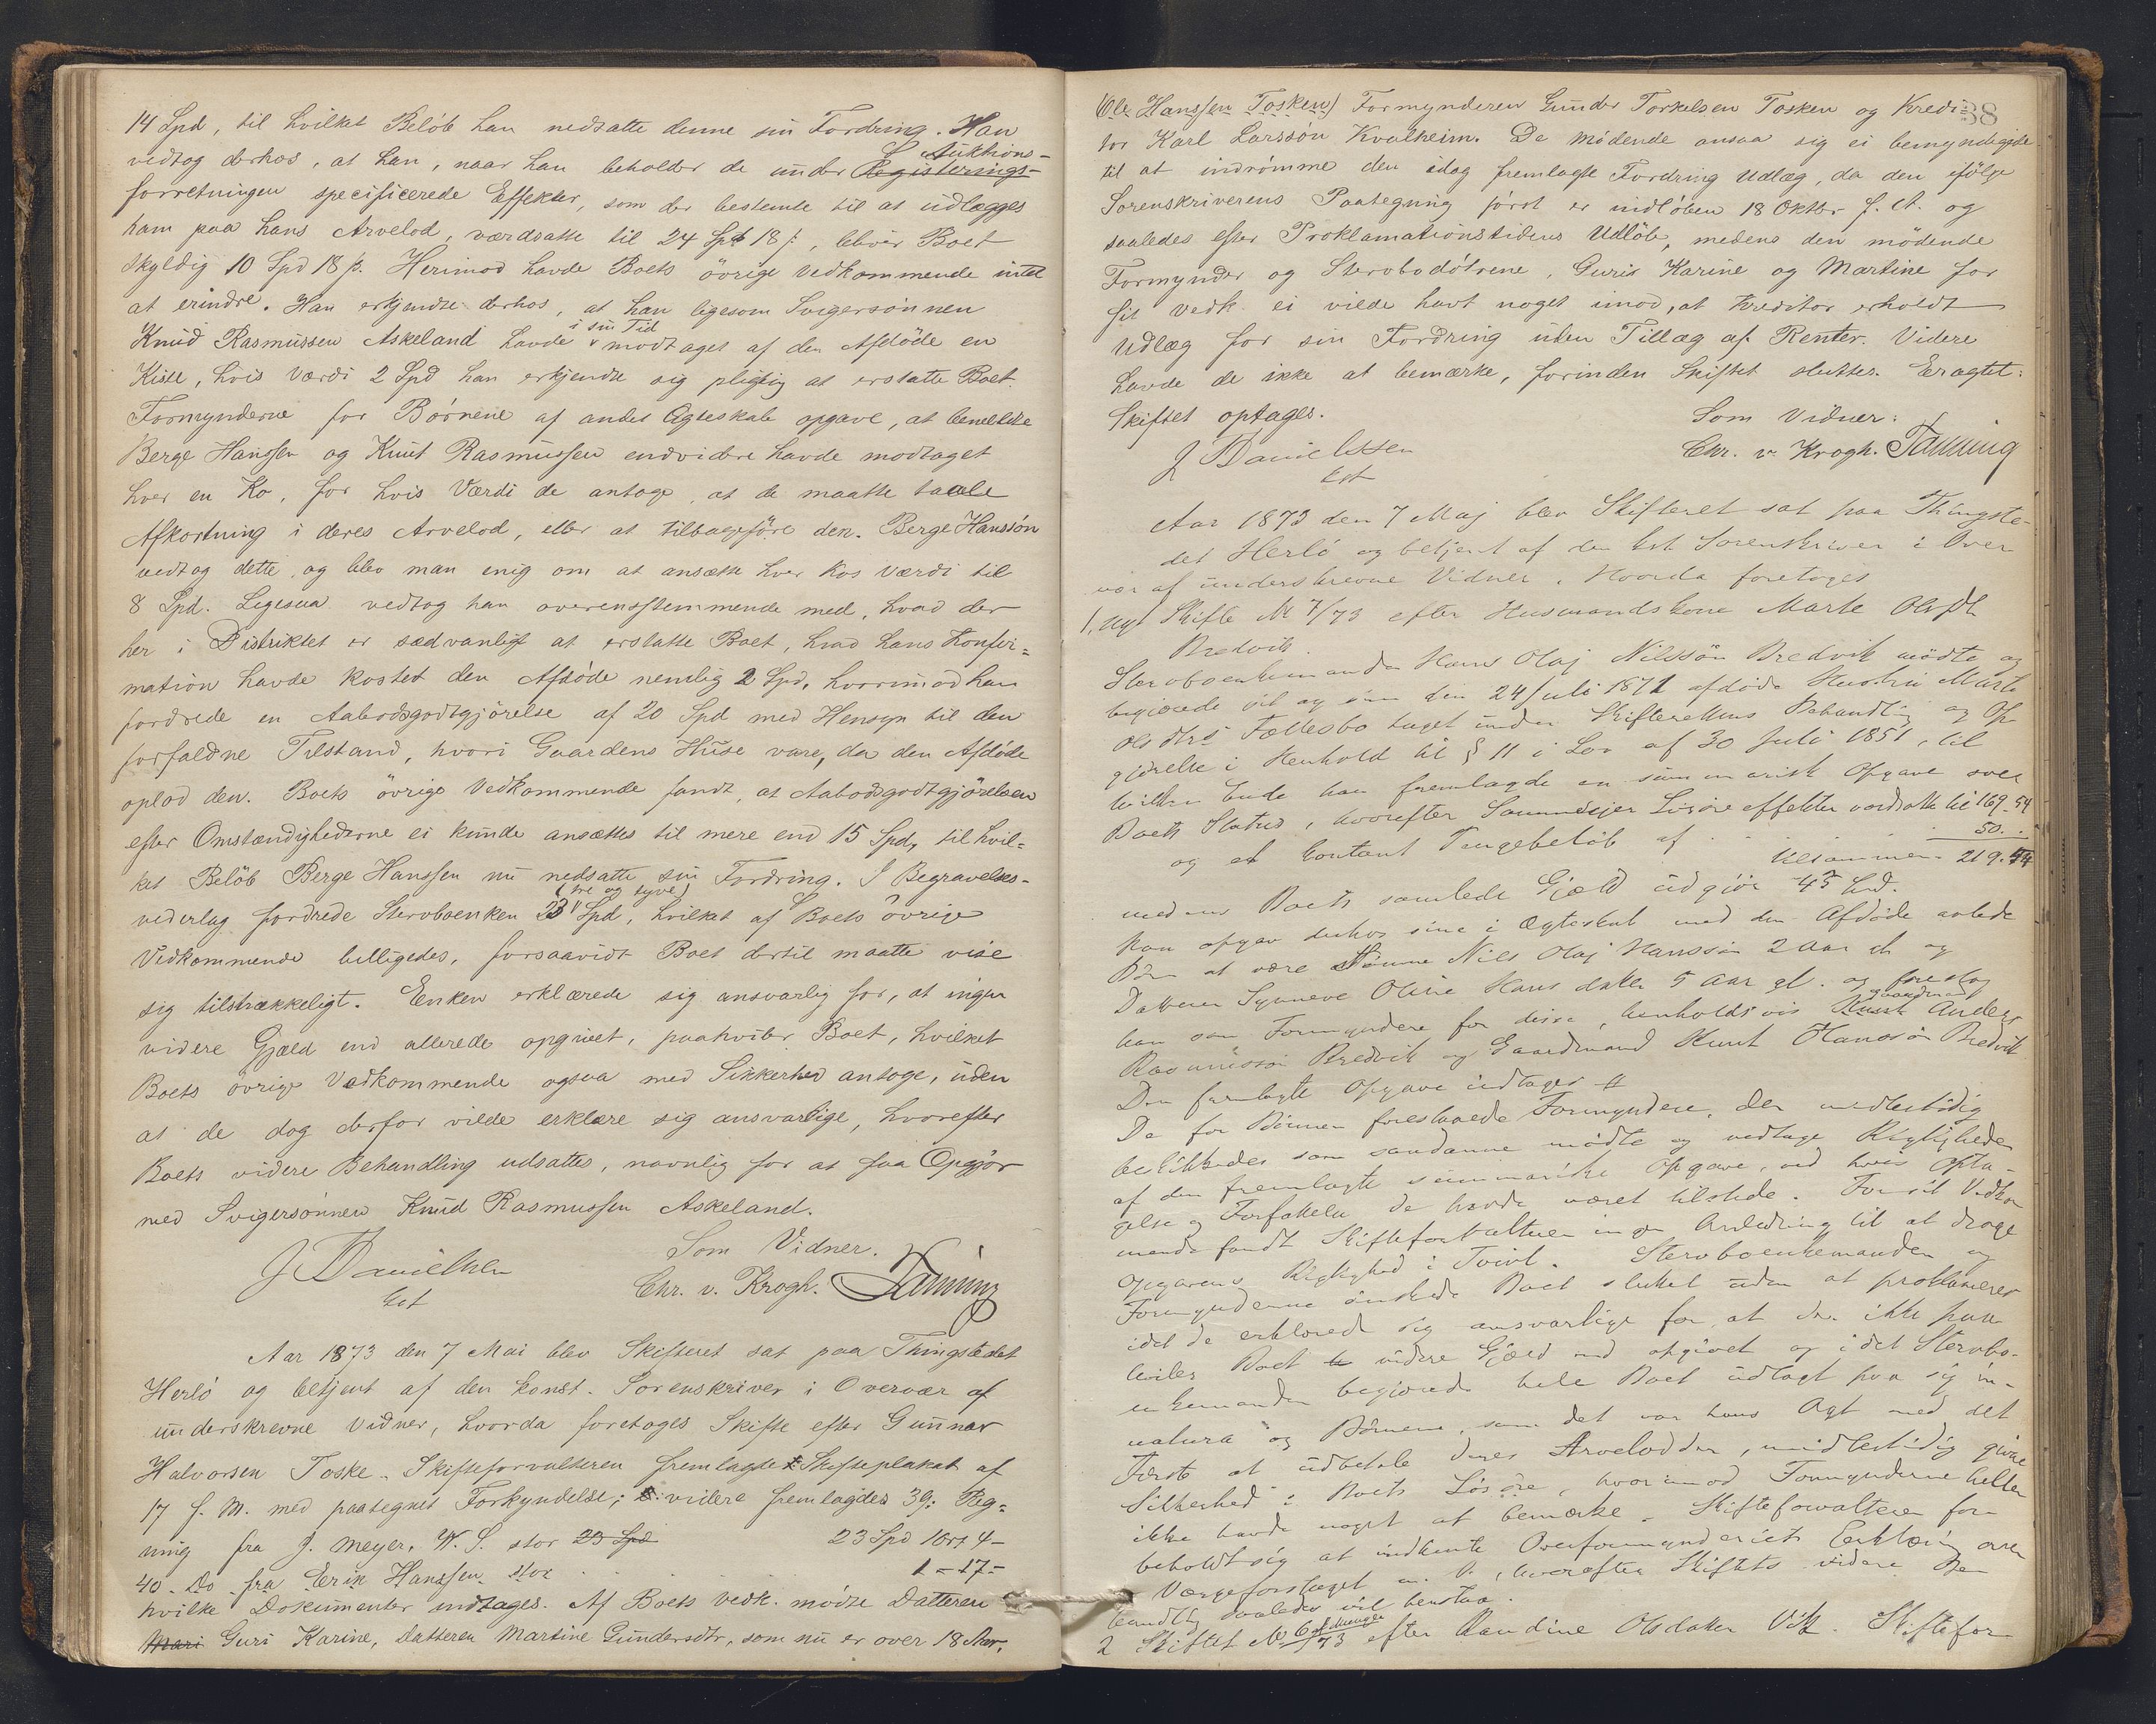 14 Spd, til hvilket Beløb han nedsatte denne sin Fordring. Han
vedtog derhos, at han, naar han beholder de under Auktions-
Registerings-
forretningen specificerede Effekter, som der bestemte til at udlægges
ham paa hans Arvelod, værdsatte til 24 Spd 18 ß, bliver Boet
skyldig 10 Spd 18 ß. Herimod havde Boets övrige Vedkommende intet
at erindre. Han erkjendte derhos, at han ligesom Svigersønnen
Knud Rasmussen Askeland havde i sin Tid modtaget af den Afdöde en
Kiste, hvis Værdi 2 Spd han erkjendte sig pligtig at erstatte Boet.
Formynderne for Börnene af andet Ægteskab opgave, at bemeldte
Berge Hanssen og Knut Rasmussen endvidere havde modtaget
hver en Ko, for hvis Værdi de antoge, at de maatte taale
Afkortning i deres Arvelod, eller at tilbageföre den. Berge Hanssön
vedtog dette, og blev man enig om at ansætte hver Kos Værdi til
8 Spd. Ligesaa vedtog han overensstemmende med, hvad der
her i Distriktet er sædvanligt at erstatte Boet, hvad hans Konfir=
mation havde kostet den Afdöde nemlig 2 Spd, hvorimod han
fordrede en Aabodsgodtgjörelse af 20 Spd med Hensyn til den
forfaldne Tilstand, hvori Gaardens Huse vare, da den Afdöde
oplod den. Boets övrige Vedkommende fandt, at Aabodsgodtgjörelsen
efter Omstændighederne ei kunde ansættes til mere end 15 Spd, til hvil=
ket Belöb Berge Hanssen nu nedsatte sin Fordring. I Begravelses-
vederlag fordrede Sterboenken 23 (tre og tyve) Spd, hvilket af Boets övrige
Vedkommende billigedes, forsaavidt Boet dertil maatte vise
sig tilstrækkeligt. Enken erklærede sig ansvarlig for, at ingen
videre Gjæld end allerede opgivet, paahviler Boet, hvilket
Boets övrige Vedkommende ogsaa med Sikkerhed antoge, uden
at de dog derfor vilde erklære sig ansvarlige, hvorefter
Boets videre Behandling udsattes, navnlig for at faa Opgjör
med Svigersönnen Knud Rasmussen Askeland.
J Danielssen
Som Vidner.
Cst
Chr. v. Krogh. Tanning
Aar 1873 den 7 Mai blev Skifteret sat paa Thingstedet
Herlö og betjent af den konst. Sorenskriver i Overvær af
underskrevne Vidner, hvorda foretoges Skifte efter Gunnar
Halvorsen Toske. Skifteforvalteren fremlagde Skifteplakat af
17 f. M. med paategnet Forkyndelse; videre fremlagdes 39: Reg=
ning fra J. Meyer, W. S. stor 23 Spd 23 Spd 1ort 4-
40. Do fra Erik Hanssen stor . . . 1 - 17 -
hvilke Dokumenter indtages. Af Boets vedk. mödte Datteren
Mari Guri Karine, Datteren Martine Gundersdtr, som nu er over 18 Aar,
38
(Ole Hanssen Tosken) Formynderen Gunder Torkelsen Tosken og Kredi=
tor Karl Larssön Kvalheim. De Mödende ansaa sig ei bemyndigede
til at indrömme den idag fremlagte Fordring Udlæg, da den ifölge
Sorenskriverens Paategning först er indlöben 18 Oktbr f. A. og
saaledes efter Proklamationstidens Udlöb, medens den mödende
Formynder og Sterbodötrene, Guris Karine og Martine for
sit vedk. ei vilde havt noget imod, at Kreditor erholdt
Udlæg for sin Fordring uden Tillæg af Renter. Videre
havde de ikke at bemærke, forinden Skiftet sluttes. Eragtet:
Skiftet optages.
Som Vidner:
J Danielssen
Chr. v. Krogh. Tanning
Cst
Aar 1873 den 7 Maj blev Skifteret sat paa Thingste-
det Herlö og betjent af den kst Sorenskriver i Over
vær af underskrevne Vidner. Hvorda foretoges
1, Nyt Skifte No 7/73 efter Husmandskone Marte Olsdt
Bredvik.
Sterboenkemanden Hans Olaj Nilssön Bredvik mödte og
begjærede sit og sin den 24 Juli 1871 afdöde Hustru Marte
Olsdtrs Fællesbo taget under Skifterettens Behandling og Op
gjörelse i Henhold til § 11 i Lov af 30 Juli 1851, til
hvilken Ende han fremlagde en summarisk Opgave over
Boets Status, hvorefter Sammes Lösöreeffekter værdsatte til 169 - 54
og et Contant Pengebelöb af . . . 50. .
tilsammen 219. 54
medens Boets samlede Gjæld udgjör 45 Spd.
Han opgav derhos sine i Ægteskab med den Afdöde avlede
Börn at være Sönnen Nils Olaj Hanssön 2 Aar gl og
Datteren Synneve Oline Hansdatter 5 Aar gl. og foreslog
han som Formyndere for disse, henholdsvis Gaardmand Anders
Rasmussön Bredvik og Gaardmand Knut Hanssön Bredvik
Den fremlagte Opgave indtages #
De for Börnene foreslaaede Formyndere, der midlertidig
beskikkedes som saadanne mödte og vedtoge Rigtigheden
af den fremlagte summariske Opgave, ved hvis Opta-
gelse og Forfattelse de havde været tilstede. For sit Vedkom
mende fandt Skifteforvalteren ingen Anledning til at drage
Opgavens Rigtighed i Tvivl. Sterboenkemanden og
Formynderne önskede Boet sluttet uden at proklameres
idet de erklærede sig ansvarlige for, at der ikke paa
hviler Boet videre Gjæld end opgivet og idet Sterbo-
enkemanden begjærede hele Boet udlagt paa sig in-
natura og Börnene, som det var hans Agt med det
Förste at udbetale deres Arvelodder, midlertidig given
Sikkerhed i Boets Lösöre, hvorimod Formynderne heller
ikke havde noget at bemærke. Skifteforvalteren for
beholdt sig at indhente Overformynderiets Erklæring over
Værgeforslaget m. V., hvorefter Skiftets videre Be
handling saaledes vil henstaa.
2 Skiftet No 6/73 efter Randine Olsdatter Vik. Skiftefor